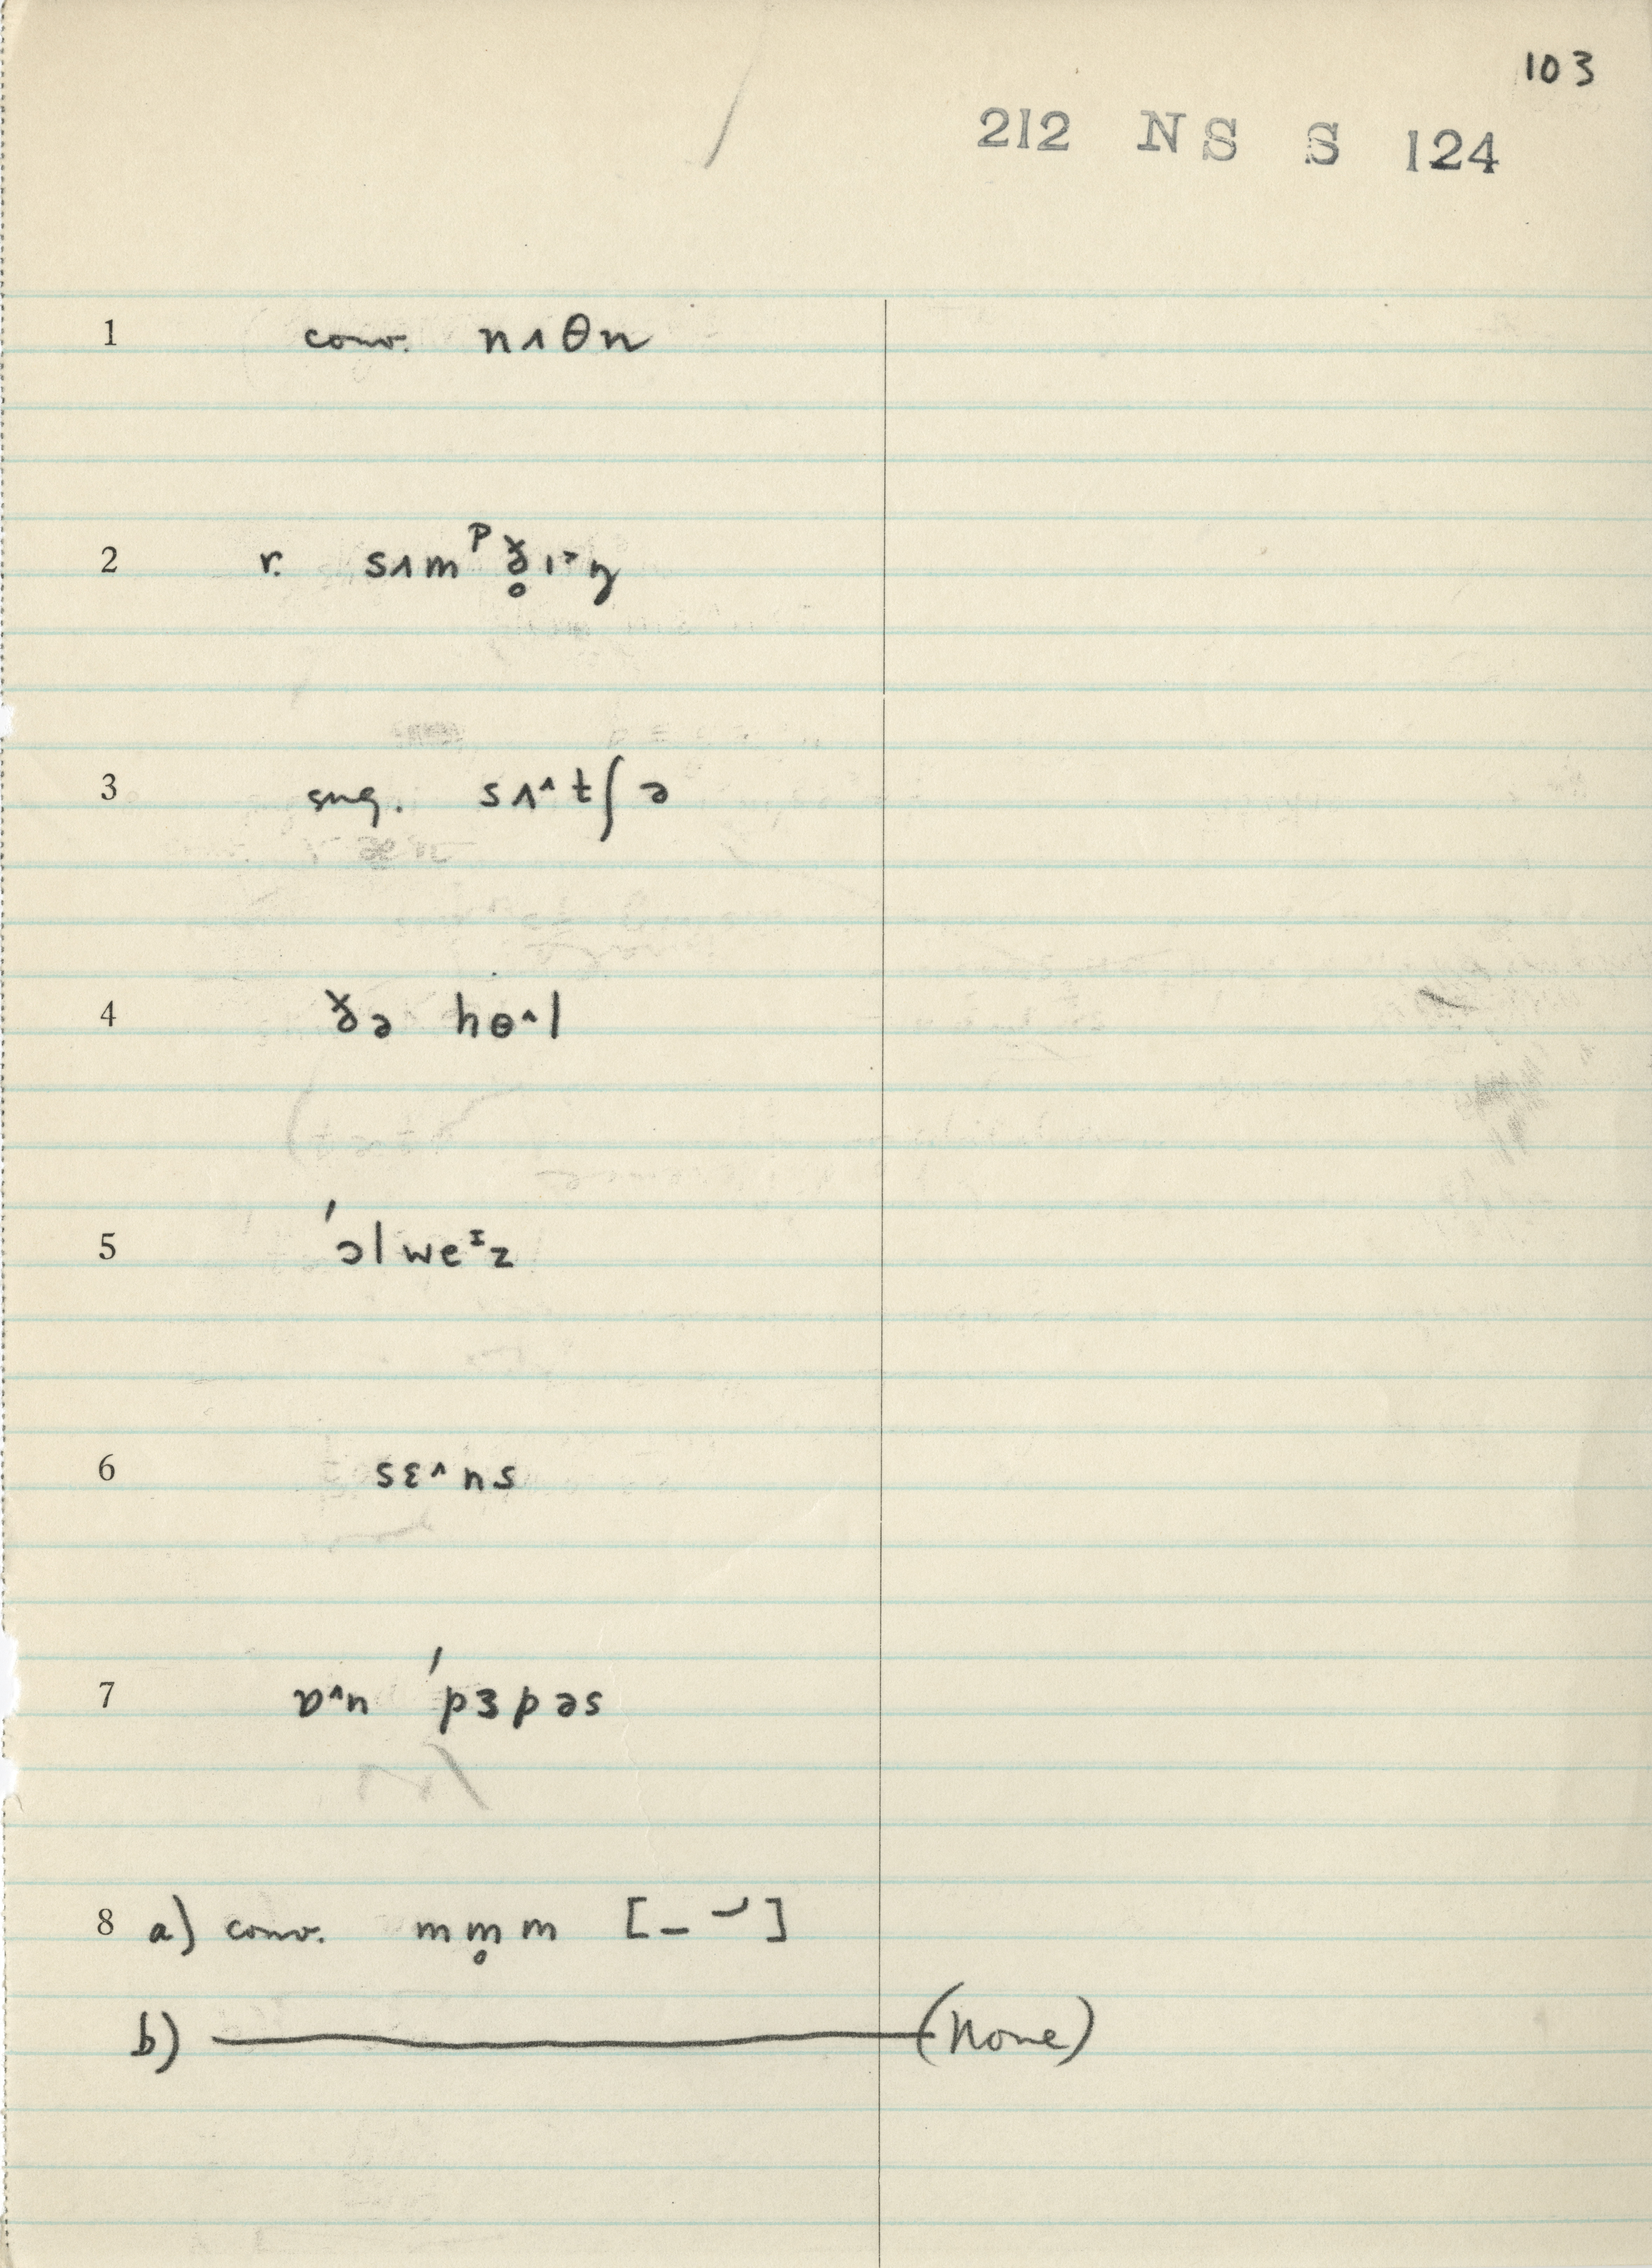 103
212 NS S 124
1 conv. nʌθn
2 r. sʌmᵖð̥ɪ˃ŋ
3 sug. sʌ^tʃə
4 ðə hɵ^l
5 ˈɔlweᶦz
6 sɛ^ns
7 ɒ^n ˈpɜpəs
8 a) conv. mm̥m [– ⌣]
b) ——— (none)